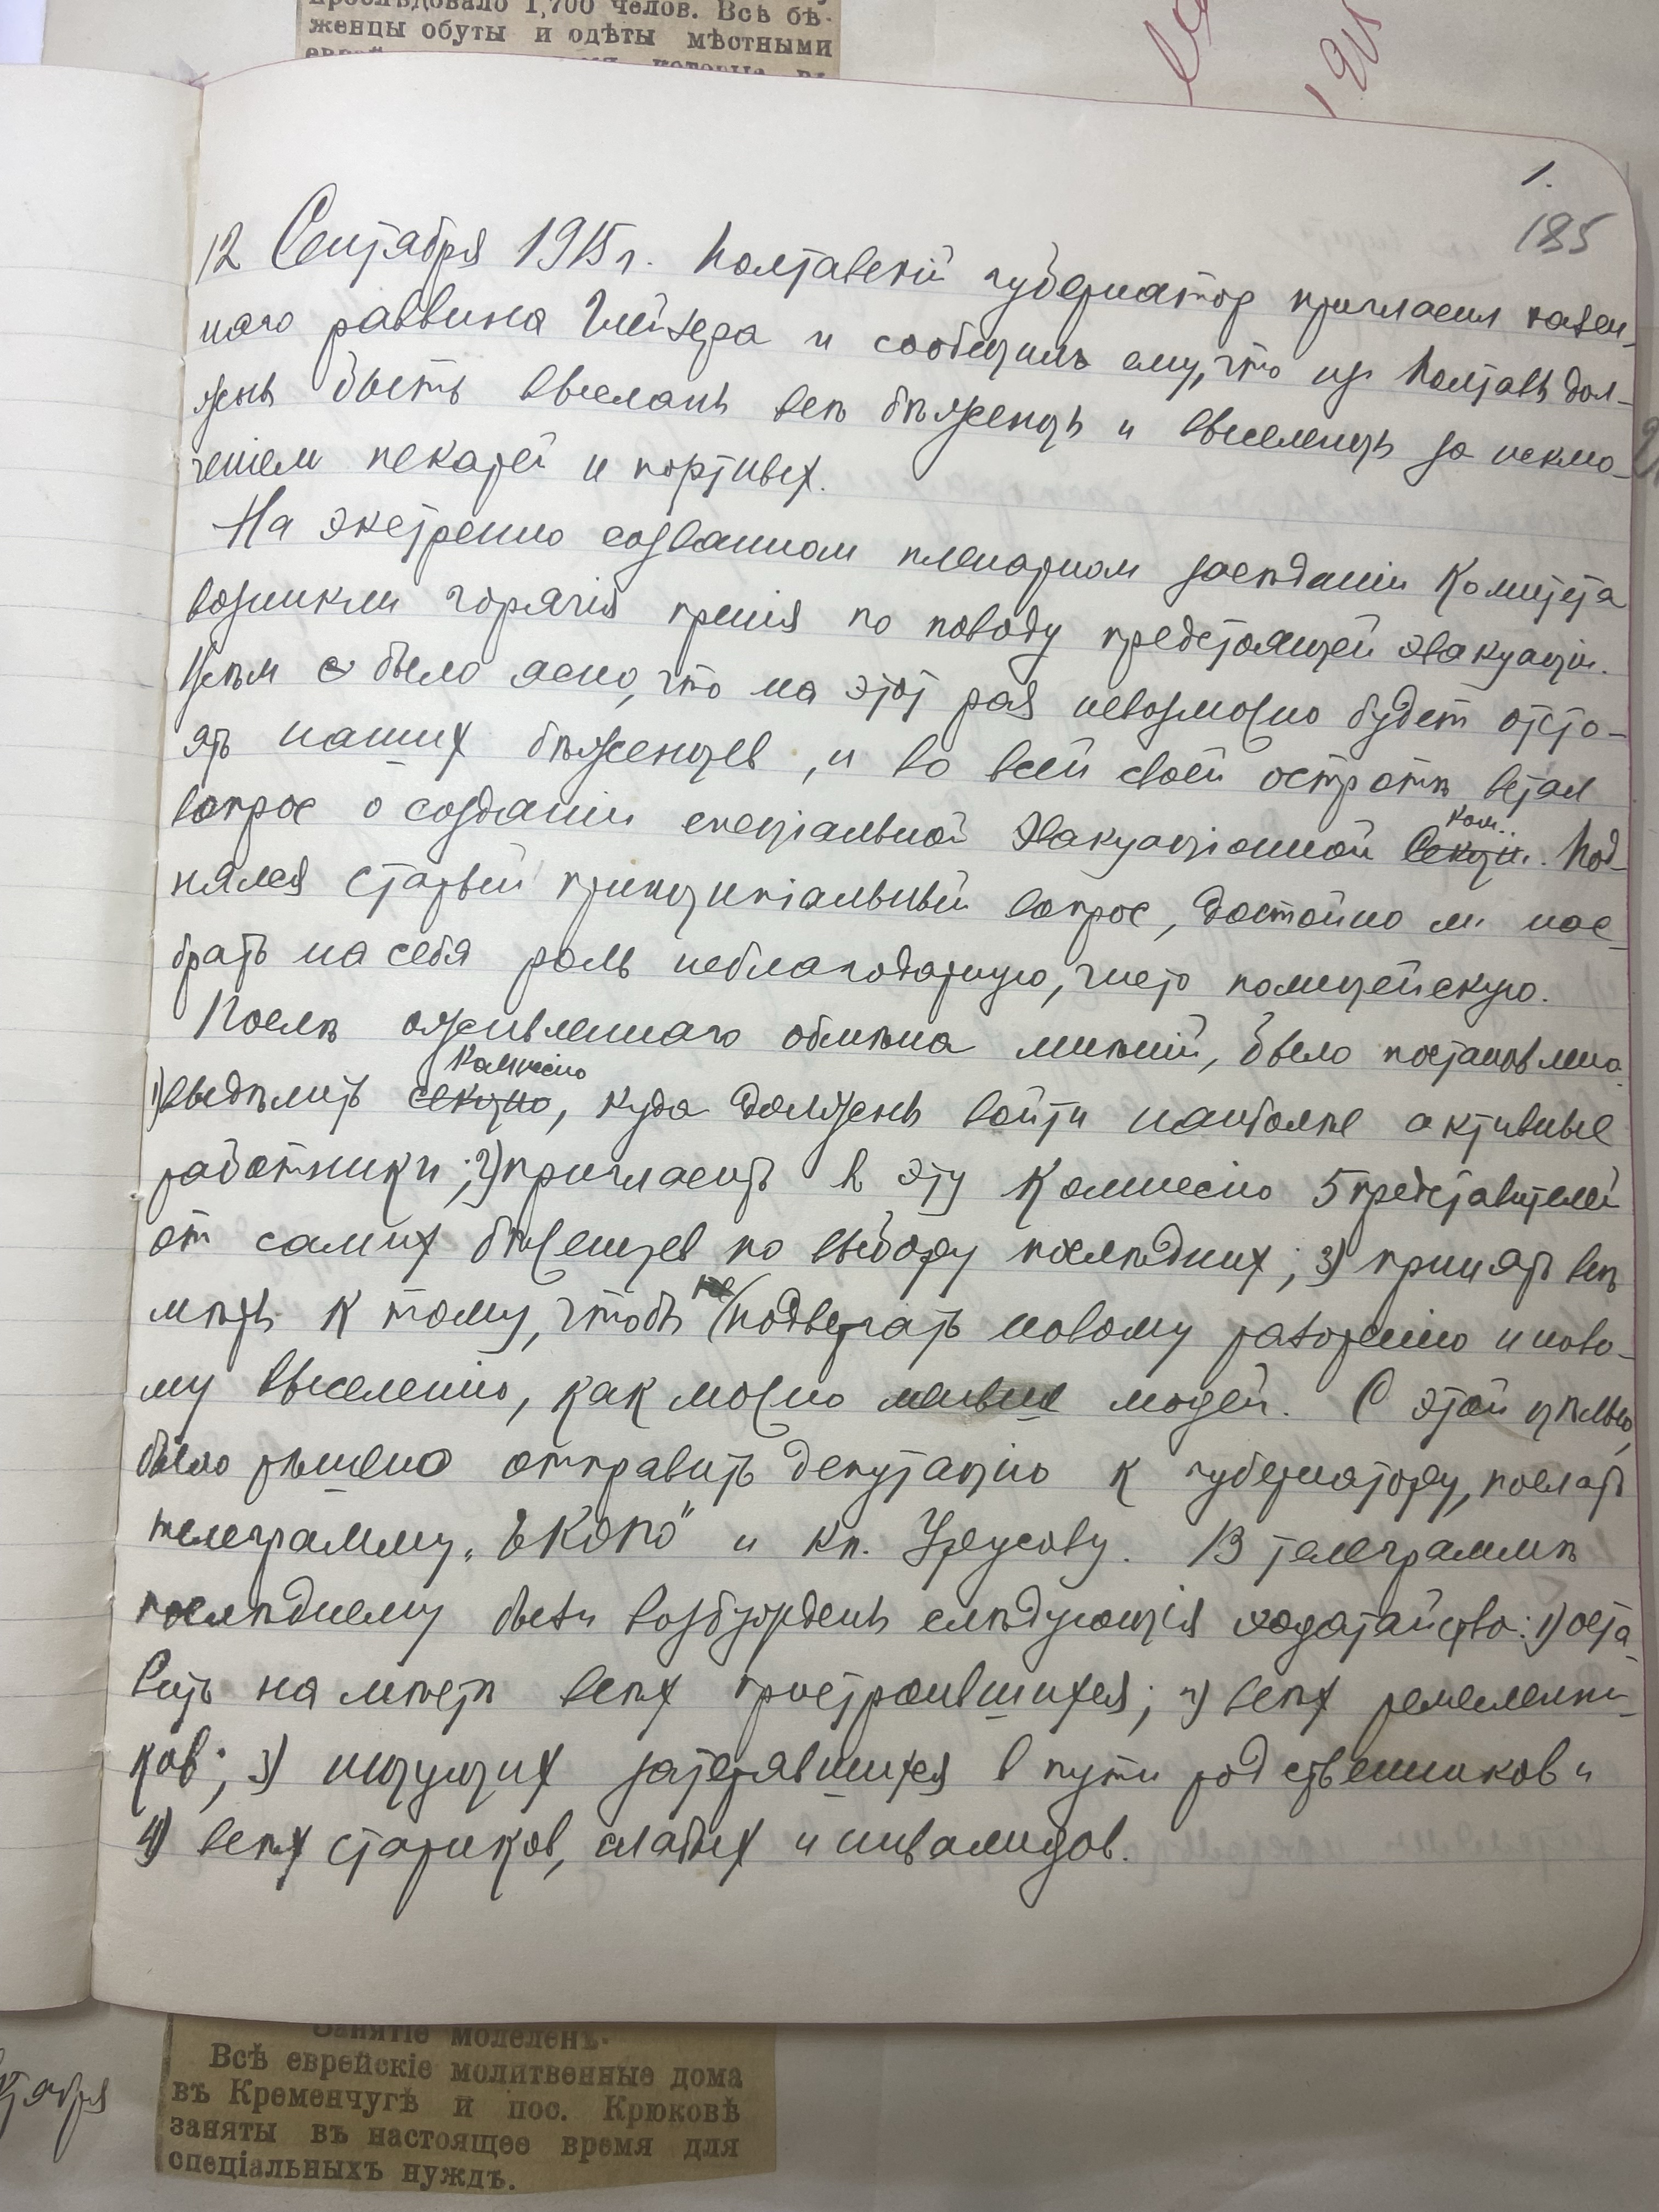 прослѣдовало 1,700 челов. Всѣ бѣ-
женцы обуты и одѣты мѣстными
1.
185
12 Сентября 1915 г. Полтавскій губернатор пригласил казен-
наго раввина Глейзера и сообщилъ ему, что из Полтавы дол-
жны быть высланы всѣ бѣженцы и выселенцы за исклю-
ченіем пекарей и портных.
На экстренно созванном пленарном засѣданіи Комитета
возникли горячія пренія по поводу предстоящей эвакуаціи.
Всѣм было ясно, что на этот раз невозможно будет отсто-
ять наших бѣженцев, и во всей своей остротѣ встал
ком..
вопрос о созданіи спеціальной Эвакуаціонной Секціи. Под-
нялся старый принципіальный вопрос, достойно ли нас
брать на себя роль неблагодарную, чисто полицейскую.
Послѣ оживленнаго обмѣна мнѣній, было постановлено:
Комиссію
1) выдѣлить секцію, куда должны войти наиболѣе активные
работники; 2) пригласить в эту Комиссію 5 представителей
от самих бѣженцев по выбору послѣдних; 3) принять всѣ
мѣры к тому, чтобы не подвергать новому разоренію и ново-
му выселенію, как можно меньше людей. С этой цѣлью,
было рѣшено отправить депутацію к губернатору, послать
телеграмму „ЕКОПО" и кн. Урусову. В телеграммѣ
послѣднему были возбуждены слѣдующія ходатайства: 1) оста-
вить на мѣстѣ всѣх пристроившихся; 2) всѣх ремесленни-
ков; 3) ищущих затерявшихся в пути родственников и
4) всѣх стариков, слабых и инвалидов.
Занятіе молеленъ.
Всѣ еврейскіе молитвенные дома
въ Кременчугѣ и пос. Крюковѣ
заняты въ настоящее время для
спеціальныхъ нуждъ.